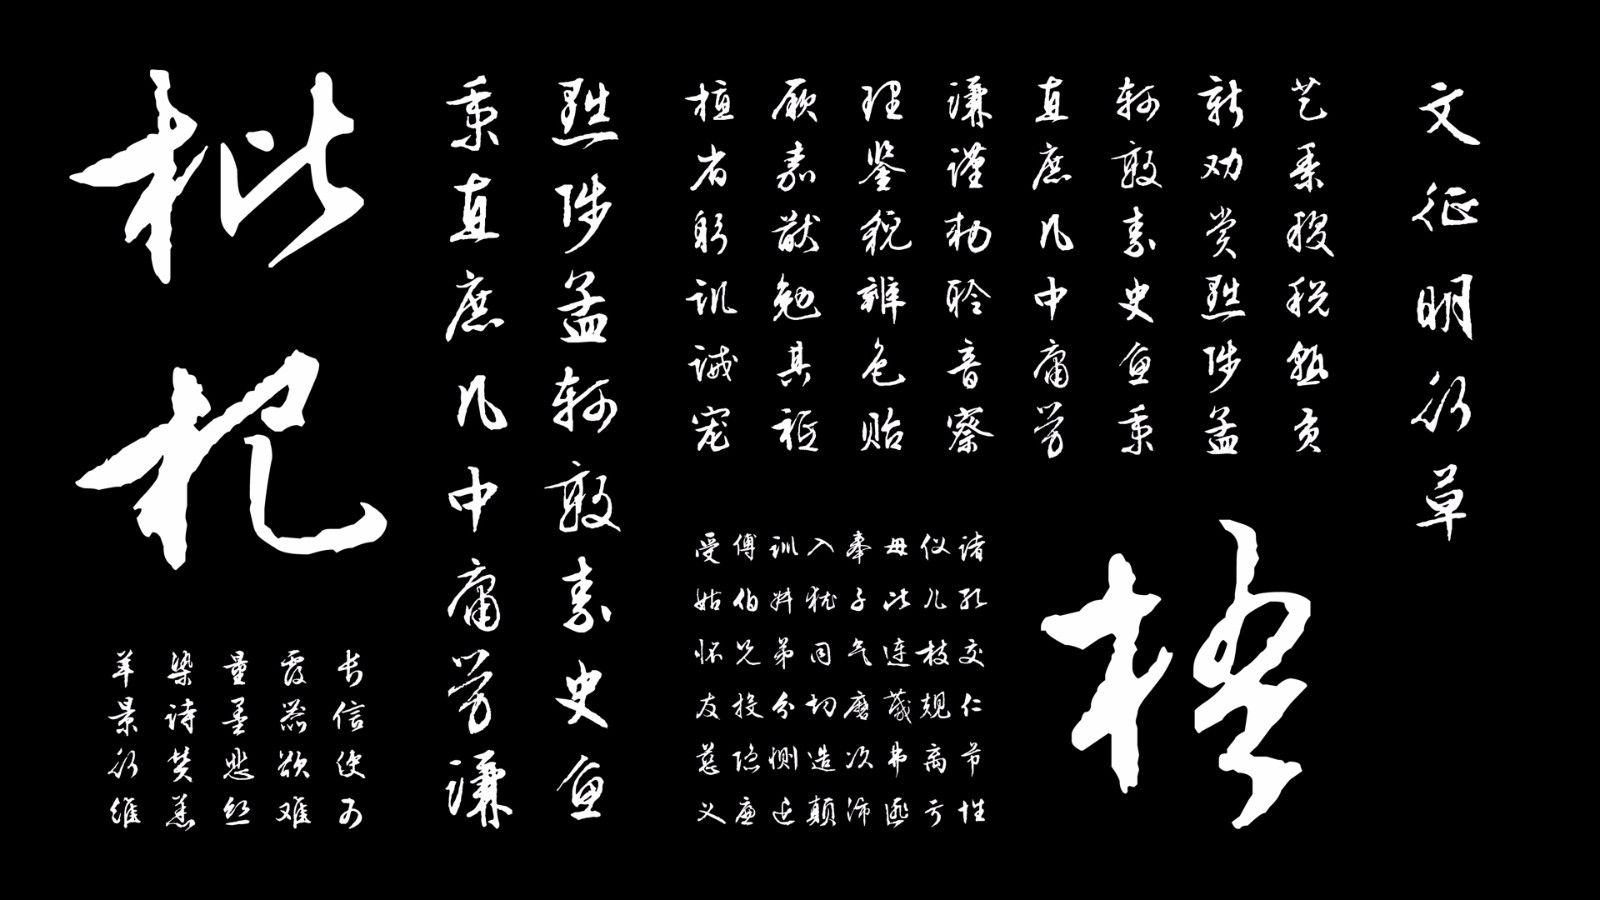 文征明行草
艺黍稷税熟贡
新劝赏黜陟孟
轲敦素史鱼秉
直庶几中庸劳
谦谨勅聆音察
理鉴貌辨色贻
厥嘉猷勉其祗
植省躬讥诫宠
梧
受傅训入奉母仪诸
姑伯叔犹子比儿孔
怀兄弟同气连枝交
友投分切磨箴规仁
慈隐恻造次弗离节
义廉退颠沛匪亏性
黜陟孟轲敦素史鱼
秉直庶几中庸劳谦
枇杷
长信使可
覆器欲难
量墨悲丝
染诗赞羔
羊景行维